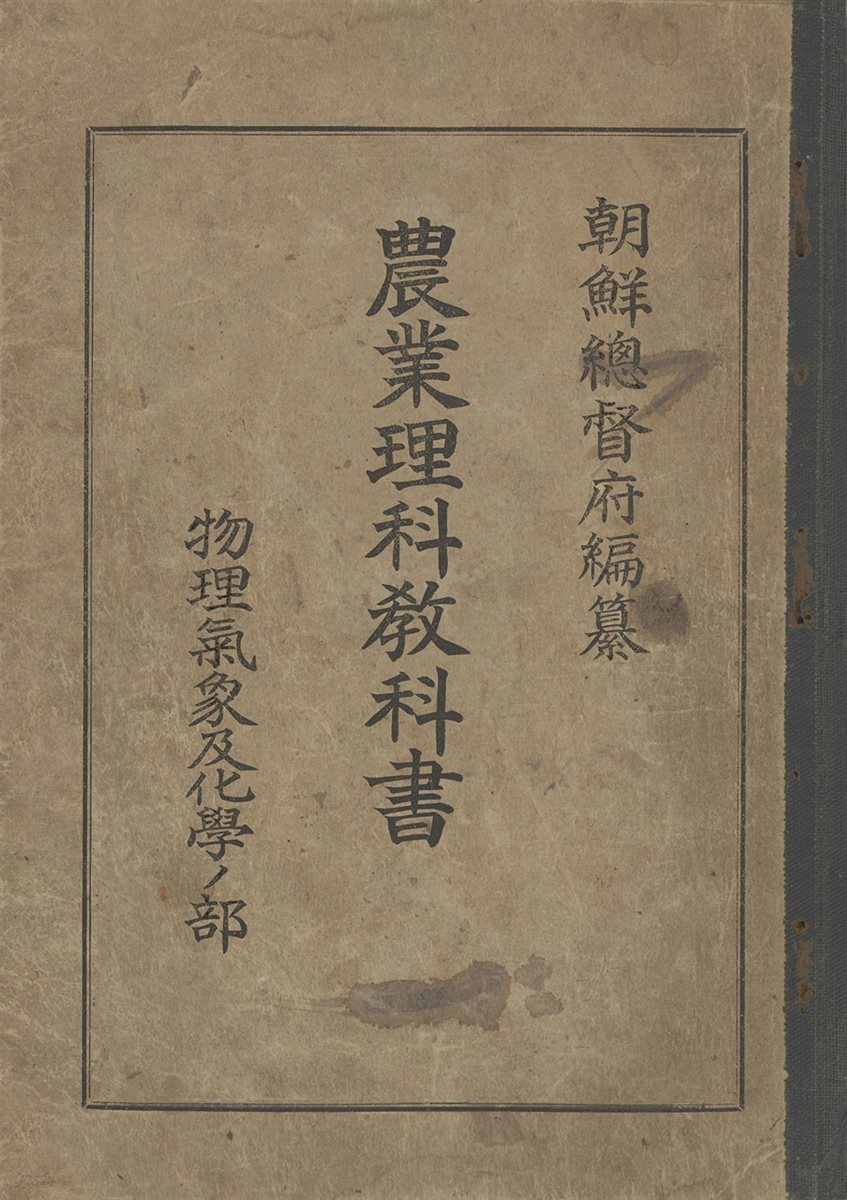 朝鮮總督府編纂
農業理科敎科書
物理氣象及化學ノ部